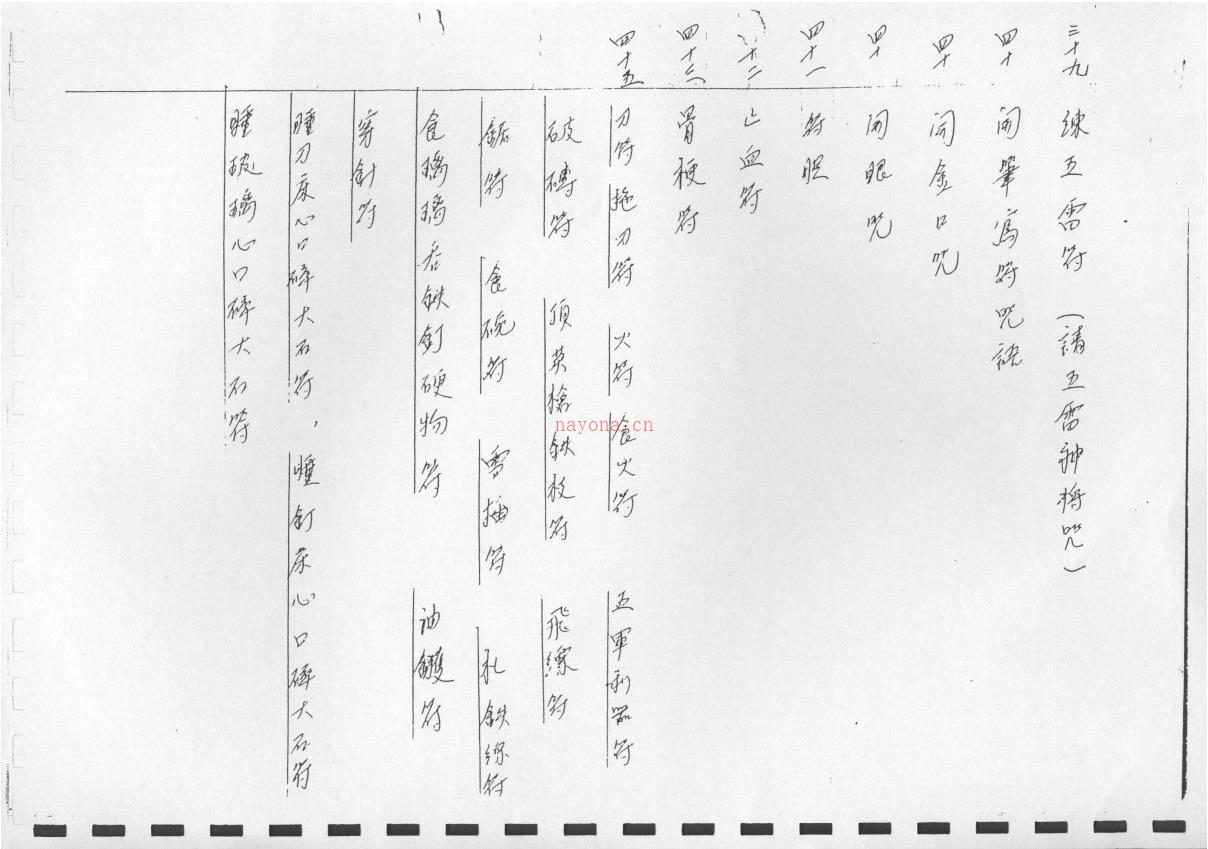 三十九 練五雷符 (請五雷神將咒)
四十 開筆寫符咒語
四十 開金口咒
四十 開眼咒
四十一 符胆
十二 止血符
四十三 骨梗符
四十五 刀符 拖刀符 火符 食火符 五軍利器符
破磚符 頂英槍鉄枝符 飛線符
鋸符 食碗符 雪插符 扎鉄線符
食璃璃吞鉄釘硬物符 油鑊符
穿針符
瞳刀床心口碎大石符, 瞳釘床心口碎大石符
瞳玻璃心口碎大石符
nayona.cn